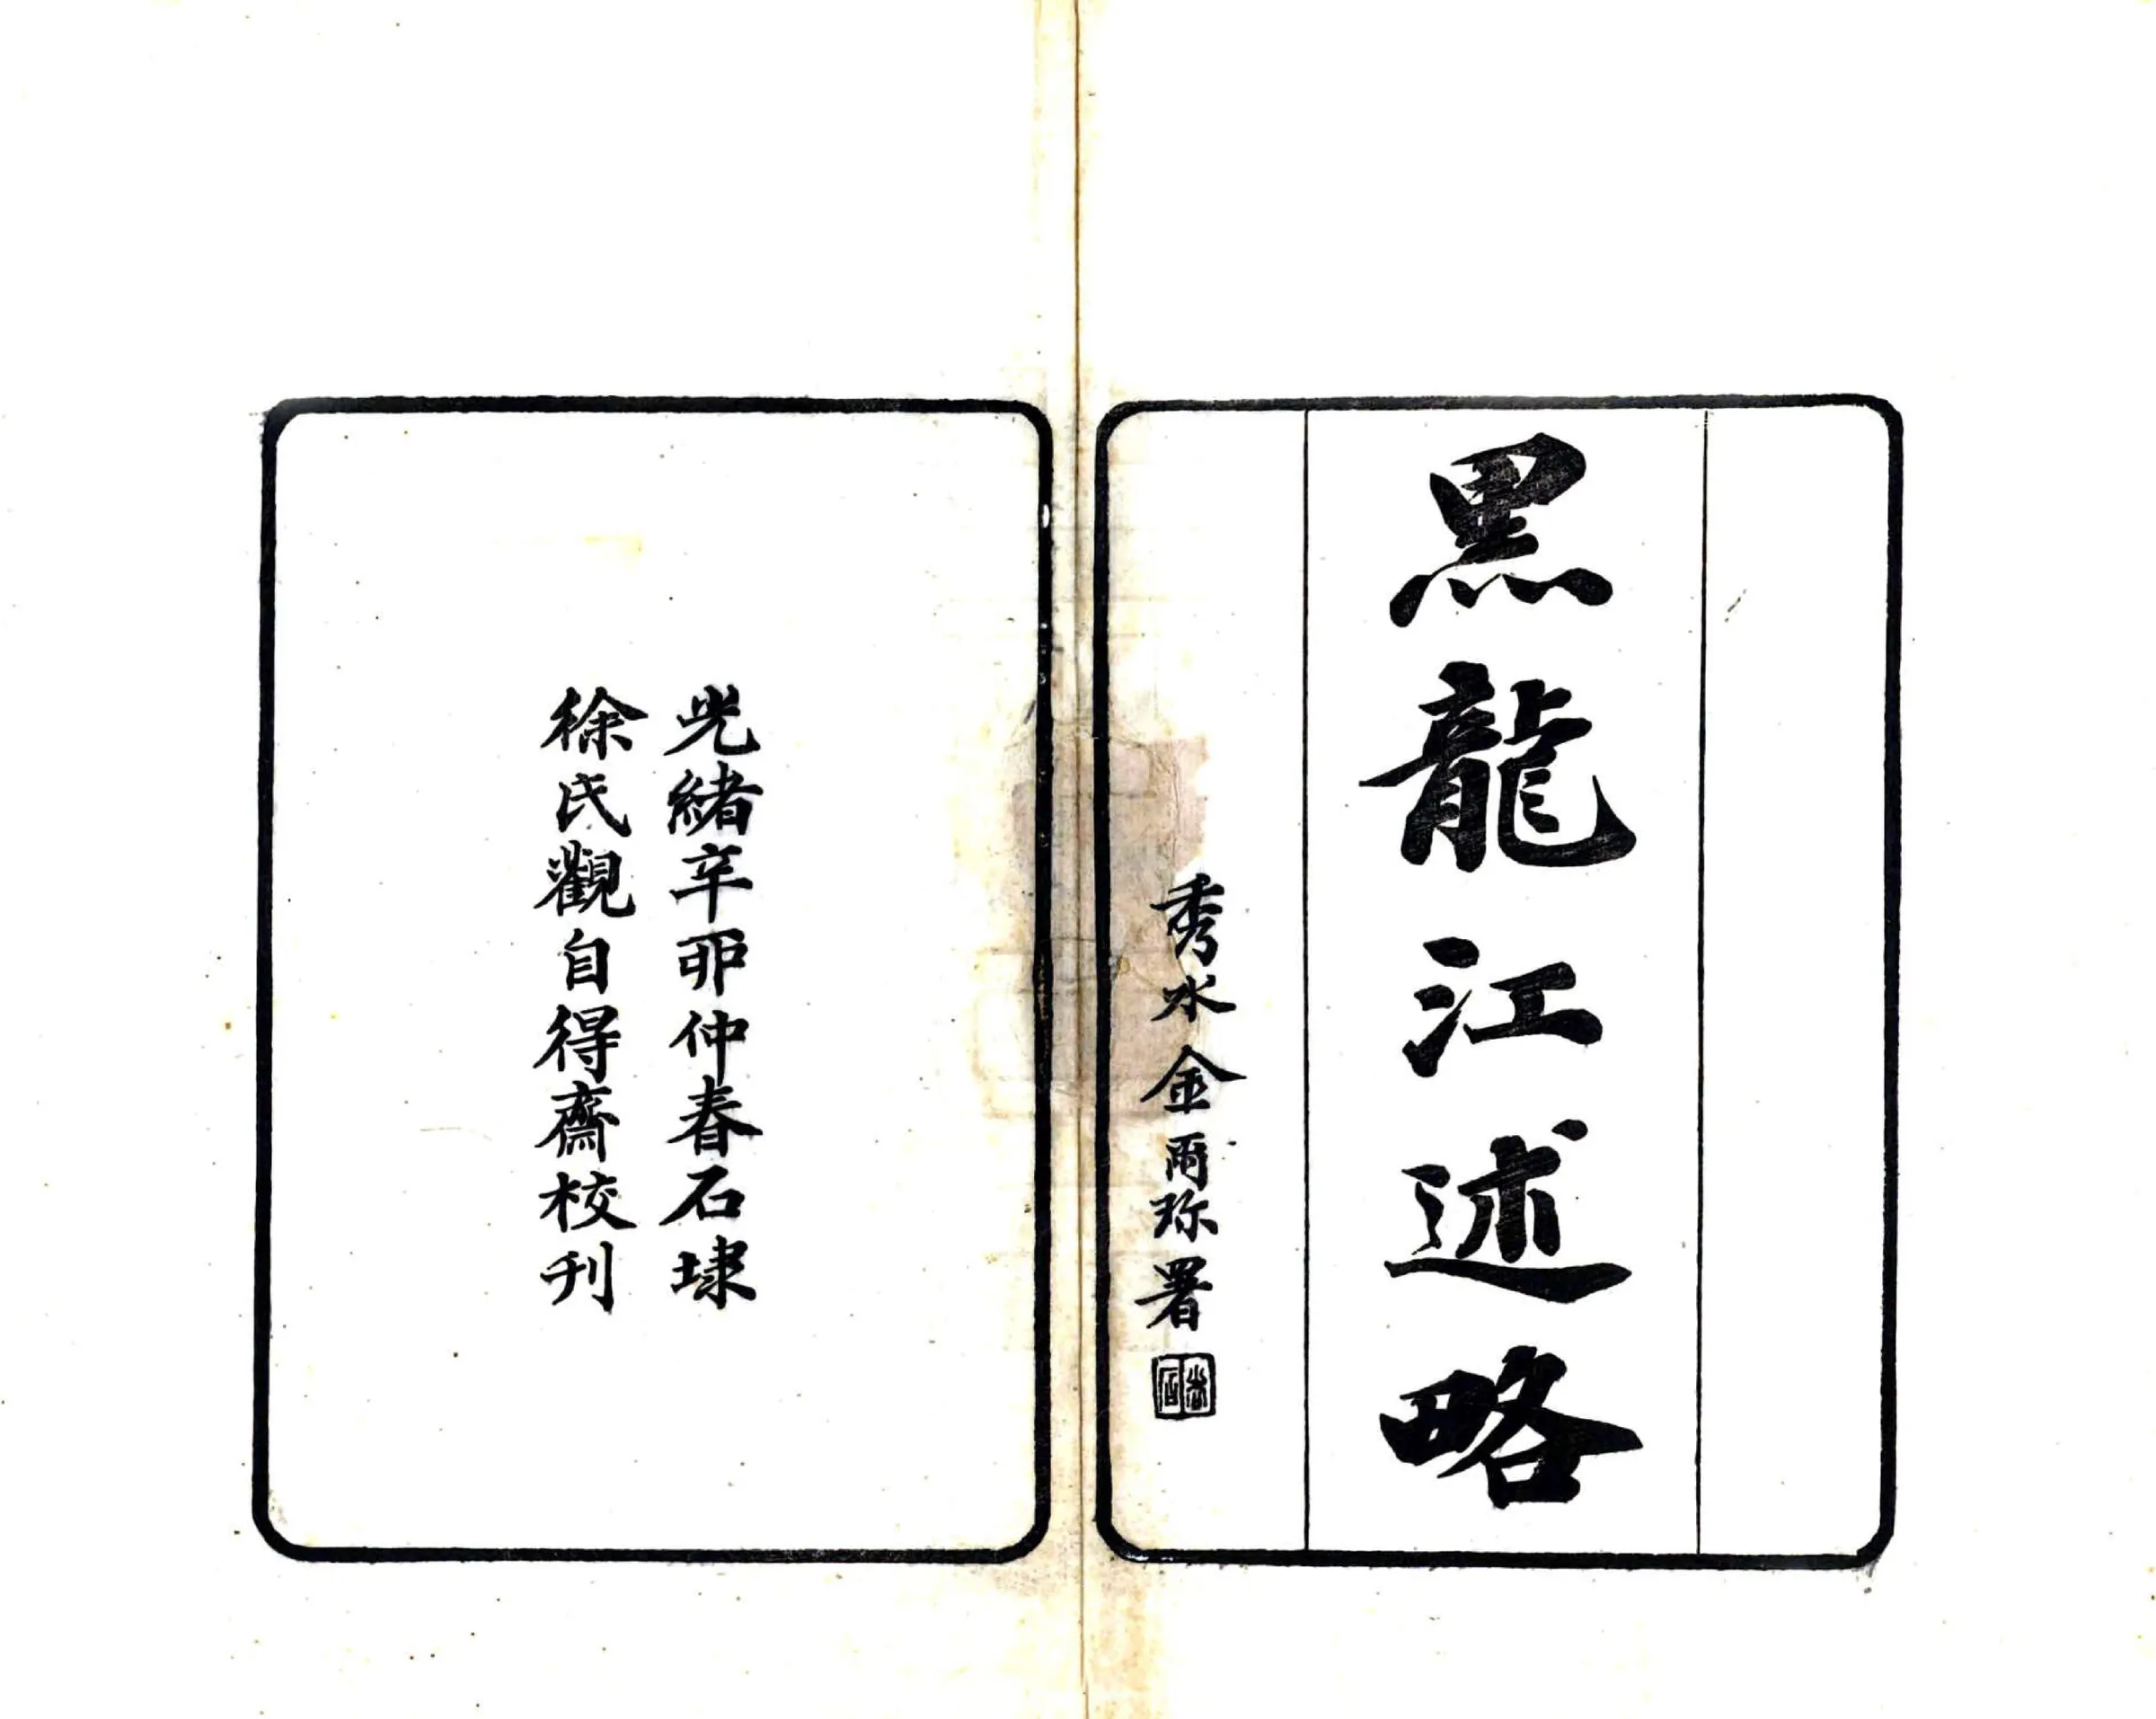 黑龍江述略
秀水金爾珍署
光緒辛卯仲春石埭
徐氏觀自得齋校刊